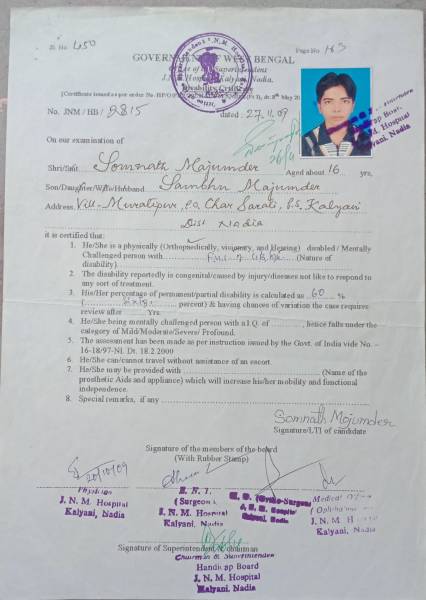 Sl. No. 450
Page No. 163
GOVERNMENT OF WEST BENGAL
Office of the Superintendent
J.N.M. Hospital Kalyani, Nadia.
Disability Certificate
No. JNM / HB / 2815
dated : 27.11.09
On our examination of
Shri/Smt. Somnath Majumder Aged about 16 yrs,
Son/Daughter/Wife/Husband Sambhu Majumder
Address. Vill- Muratipur, P.O. Char Sarati, P.S. Kalyani
Dist Nadia
it is certified that:
1. He/She is a physically (Orthopaedically, visionary, and hearing) disabled / Mentally
Challenged person with (Nature of
disability)
2. The disability reportedly is congenital/caused by injury/diseases not like to respond to
any sort of treatment.
3. His/Her percentage of permanent/partial disability is calculated as 60 %
( Sixty percent) & having chances of variation the case requires
review after Yrs.
4. He/She being mentally challenged person with a I.Q. of , hence falls under the
category of Mild/Moderate/Severe/ Profound.
5. The assessment has been made as per instruction issued by the Govt. of India vide No. -
16-18/97-NI. Dt. 18.2.2000
6. He/She can/cannot travel without assistance of an escort.
7. He/She may be provided with (Name of the
prosthetic Aids and appliance) which will increase his/her mobility and functional
independence.
8. Special remarks, if any
Somnath Majumder
Signature/LTI of candidate
Signature of the members of the board
(With Rubber Stamp)
20/10/09
Physician
J. N. M. Hospital
Kalyani, Nadia
E. N. T.
( Surgeon )
J. N. M. Hospital
Kalyani, Nadia
Medical Officer
J. N. M. Hospital
Kalyani, Nadia
Signature of Superintendent & chairman
Chairman & Superintendent
Handicap Board
J. N. M. Hospital
Kalyani, Nadia